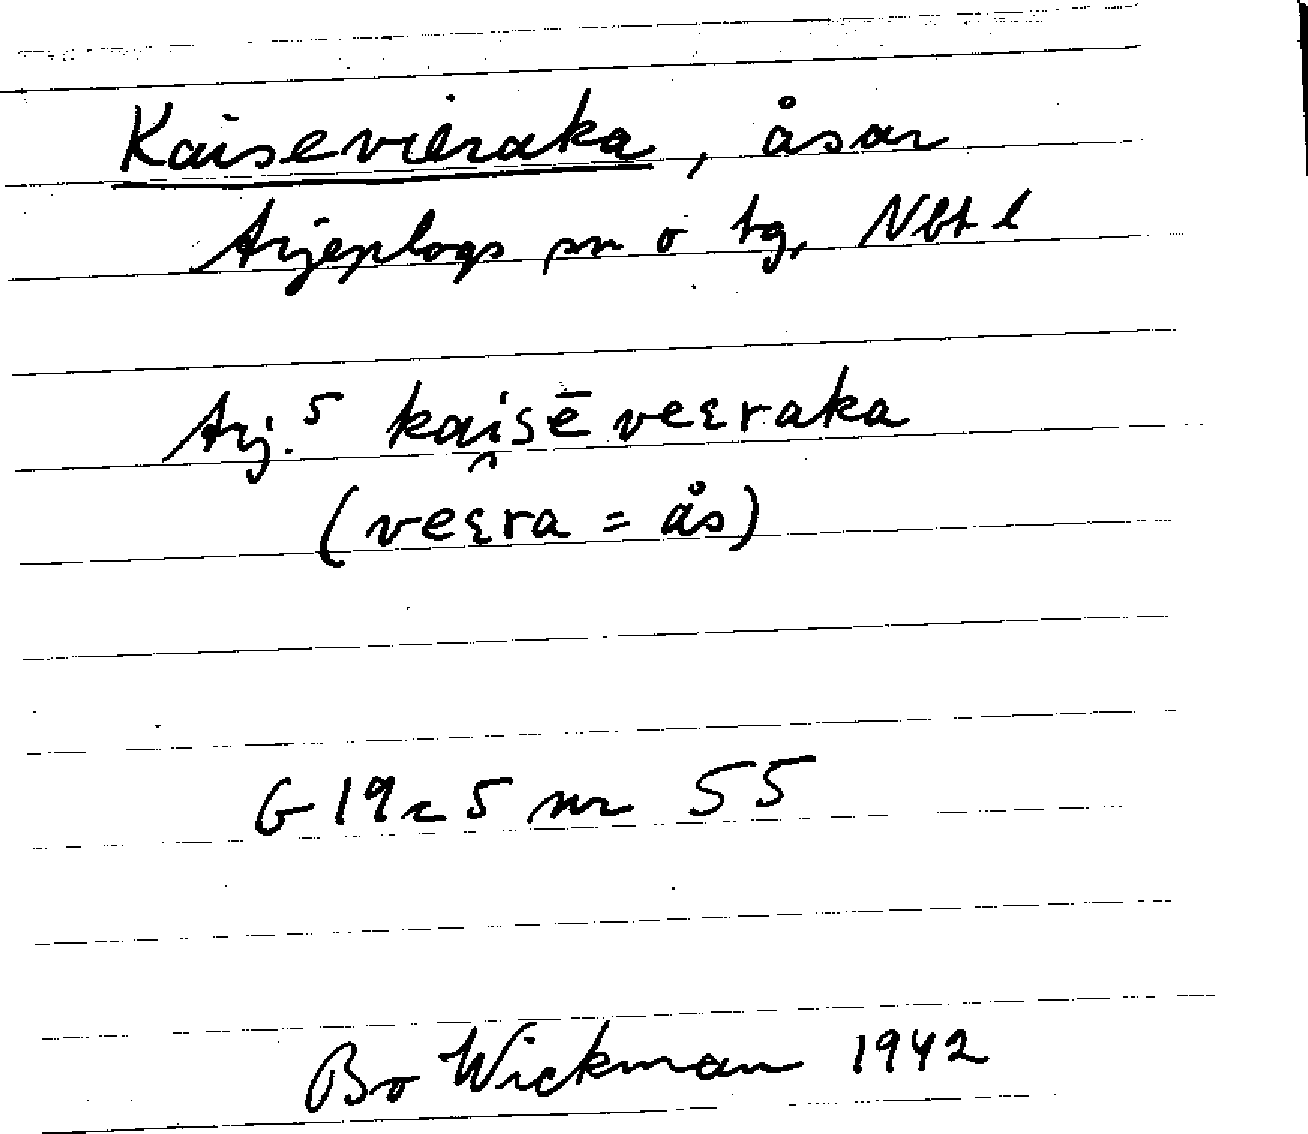 Kaisevieraka, åsar
Arjeplogs sn o tg, Nbt l
Arj. 5 kai̯sē veɛraka
(veɛra = ås)
G 19 c 5 nr 55
Bo Wickman 1942